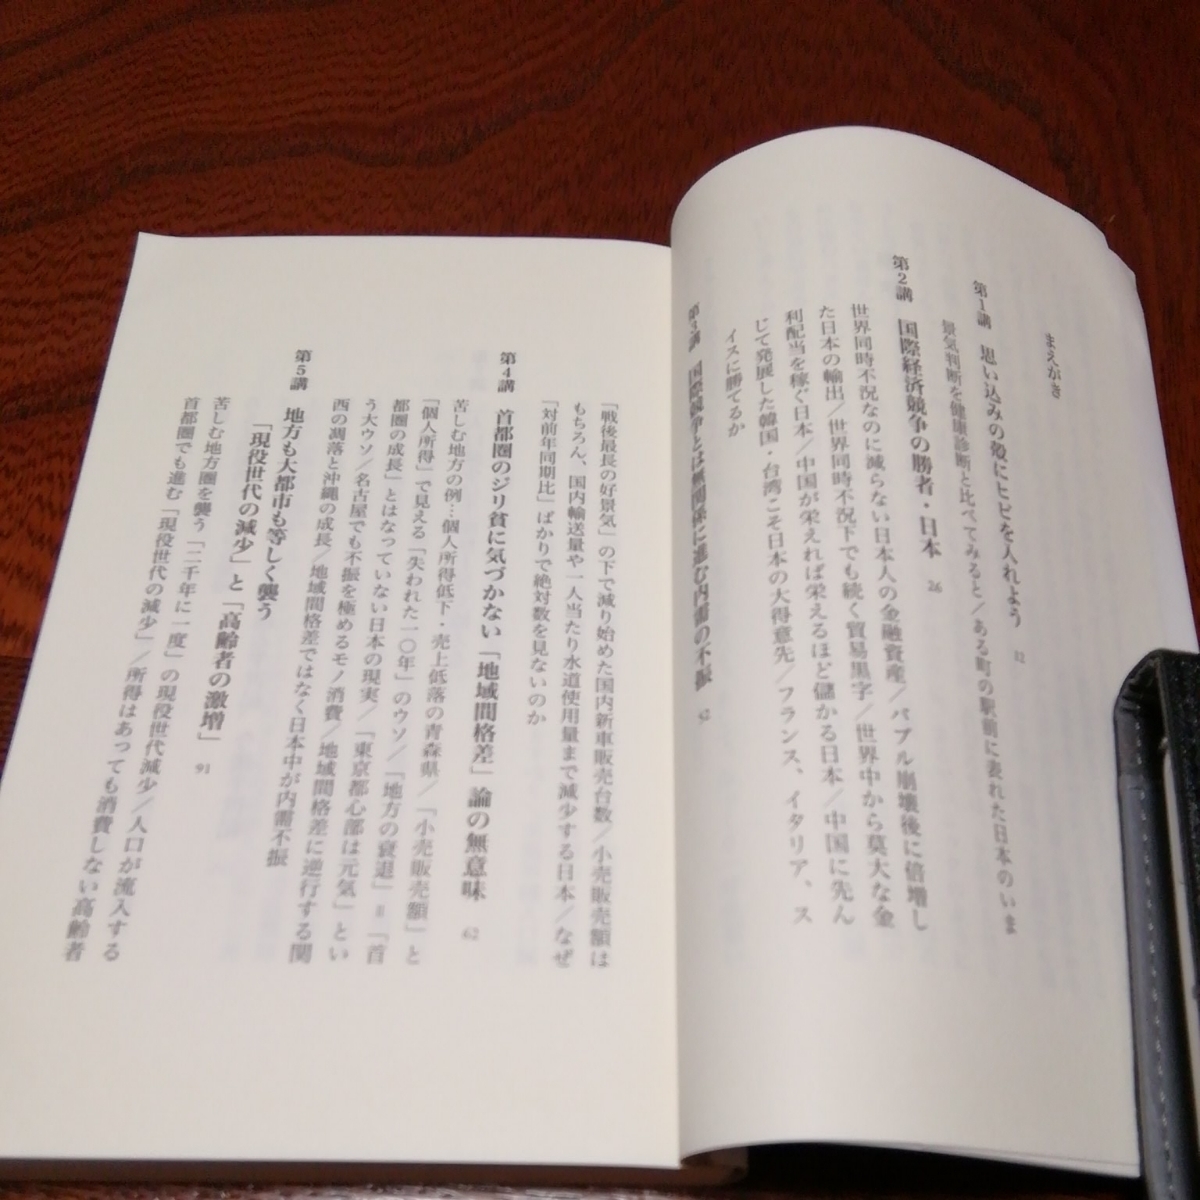 まえがき
第1講 思い込みの殻にヒビを入れよう 12
景気判断を健康診断と比べてみると／ある町の駅前に表れた日本のいま
第2講 国際経済競争の勝者・日本 26
世界同時不況なのに減らない日本人の金融資産／バブル崩壊後に倍増し
た日本の輸出／世界同時不況下でも続く貿易黒字／世界中から莫大な金
利配当を稼ぐ日本／中国が栄えれば栄えるほど儲かる日本／中国に先ん
じて発展した韓国・台湾こそ日本の大得意先／フランス、イタリア、ス
イスに勝てるか
第3講 国際競争とは無関係に進む内需の不振 52
「戦後最長の好景気」の下で減り始めた国内新車販売台数／小売販売額は
もちろん、国内輸送量や一人当たり水道使用量まで減少する日本／なぜ
「対前年同期比」ばかりで絶対数を見ないのか
第4講 首都圏のジリ貧に気づかない「地域間格差」論の無意味 62
苦しむ地方の例…個人所得低下・売上低落の青森県／「小売販売額」と
「個人所得」で見える「失われた一〇年」のウソ／「地方の衰退」＝「首
都圏の成長」とはなっていない日本の現実／「東京都心部は元気」とい
う大ウソ／名古屋でも不振を極めるモノ消費／地域間格差に逆行する関
西の凋落と沖縄の成長／地域間格差ではなく日本中が内需不振
第5講 地方も大都市も等しく襲う
「現役世代の減少」と「高齢者の激増」 91
苦しむ地方圏を襲う「二千年に一度」の現役世代減少／人口が流入する
首都圏でも進む「現役世代の減少」／所得はあっても消費しない高齢者